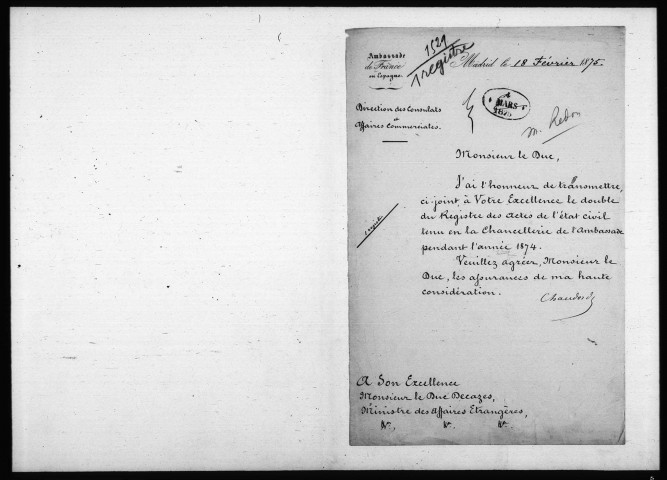 Ambassade
de France
en Espagne.
1521
1 registre
Madrid le 18 Février 1875.
Direction des Consulats
et
Affaires Commerciales.
4
MARS
1875
M. Rebou
Monsieur le Duc,
J'ai l'honneur de transmettre,
ci-joint, à Votre Excellence le double
du Registre des actes de l'état civil
tenu en la Chancellerie de l'Ambassade
pendant l'année 1874.
Veuillez agréer, Monsieur le
Duc, les assurances de ma haute
considération.
Chaudordy
1 registre
A Son Excellence
Monsieur le Duc Decazes,
Ministre des Affaires Etrangères,